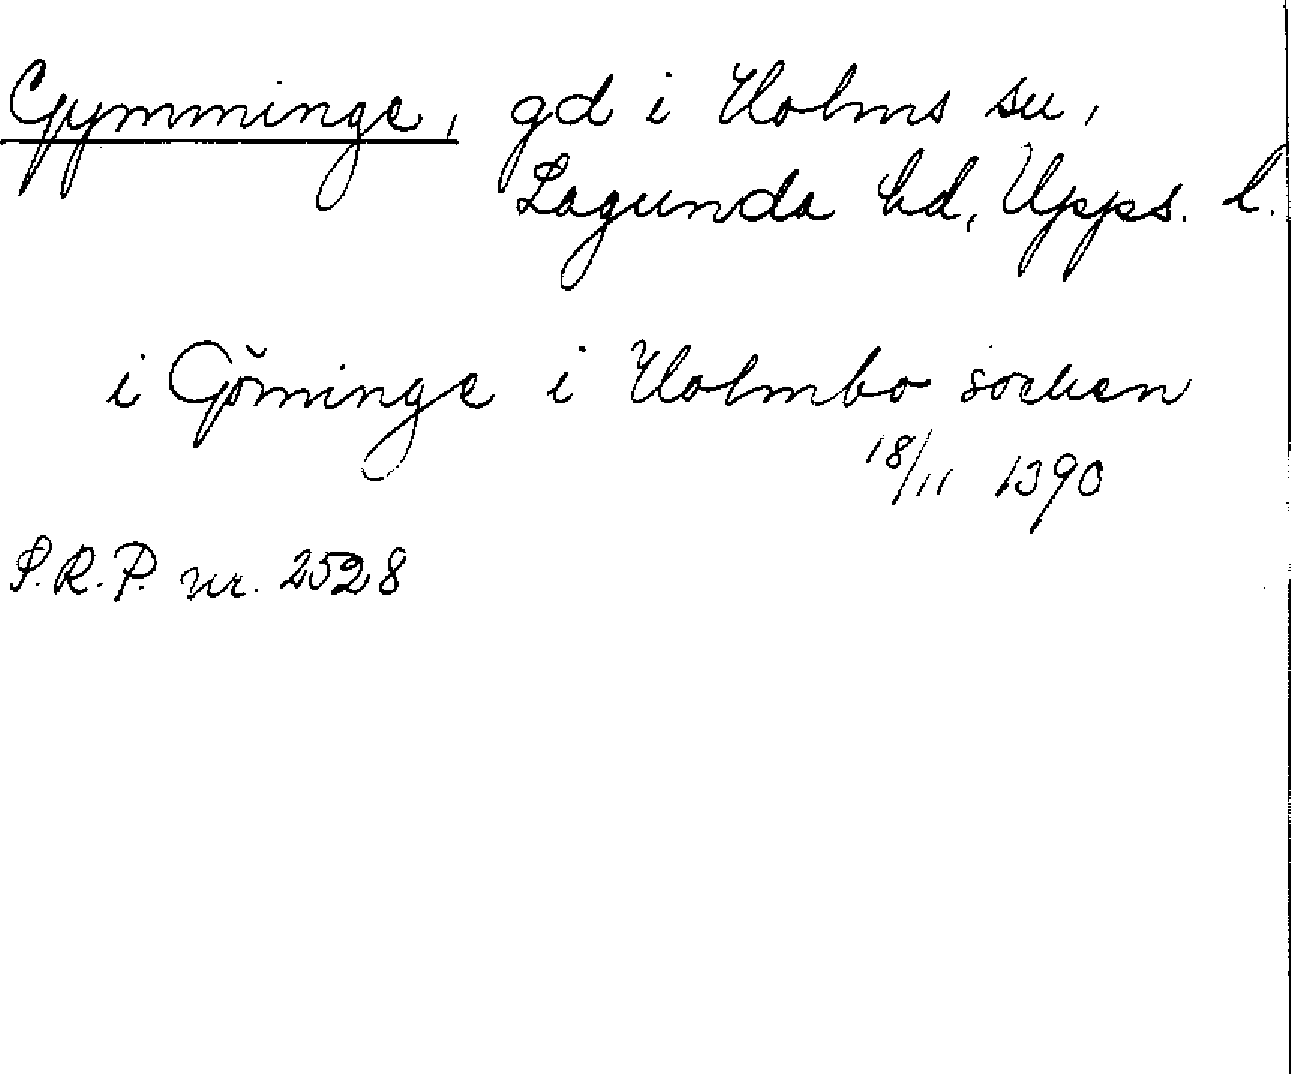 Gymminge, gd i Holms sn,
Lagunda hd, Upps. l.
i Göminge i Holmbo socken
18/11 1390
S.R.P. nr. 2528